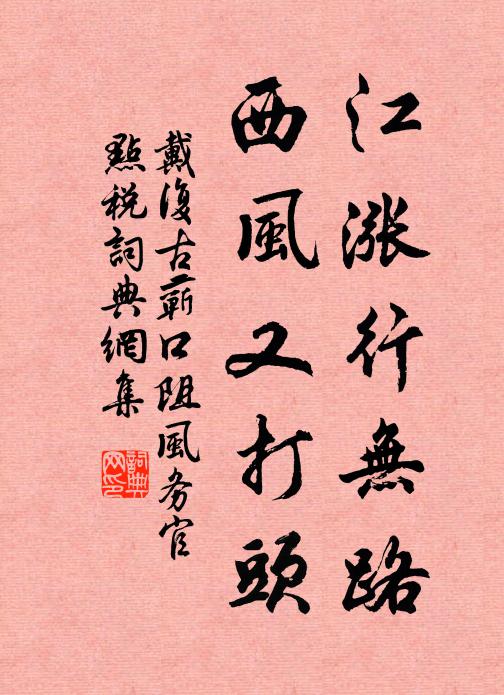 江漲行無路
西風又打頭
戴復古蘄口阻風务官
點税詞典網集
詞典
网印